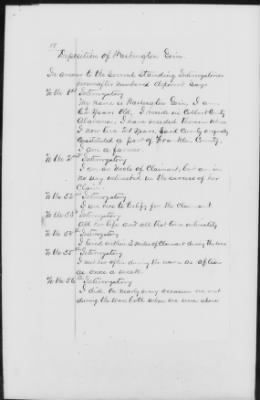 Deposition of Washington Goins.
In answer to the Several Standing Interrogatories
hereinafter numbered deponent says
To the 1st Interrogatory
My name is Washington Goins, I am
62 Years Old, I reside in Colbert County
Alabama, I have resided there where
I now live Years, said County originally
constituted a part of Franklin County,
I am a farmer.
To the 2nd Interrogatory
I am an Uncle of Claimant, but am in
no way interested in the success of her
Claim.
To the 52nd Interrogatory
I am here to testify for the Claimant
To the 53rd Interrogatory
All her life and all that time intimately
To the 54th Interrogatory
I lived within 2 miles of Claimant during the war
To the 55th Interrogatory
I met her often during the war as often
as once a week.
To the 56th Interrogatory
I did, on nearly every occasion we met
during the War both when we were alone